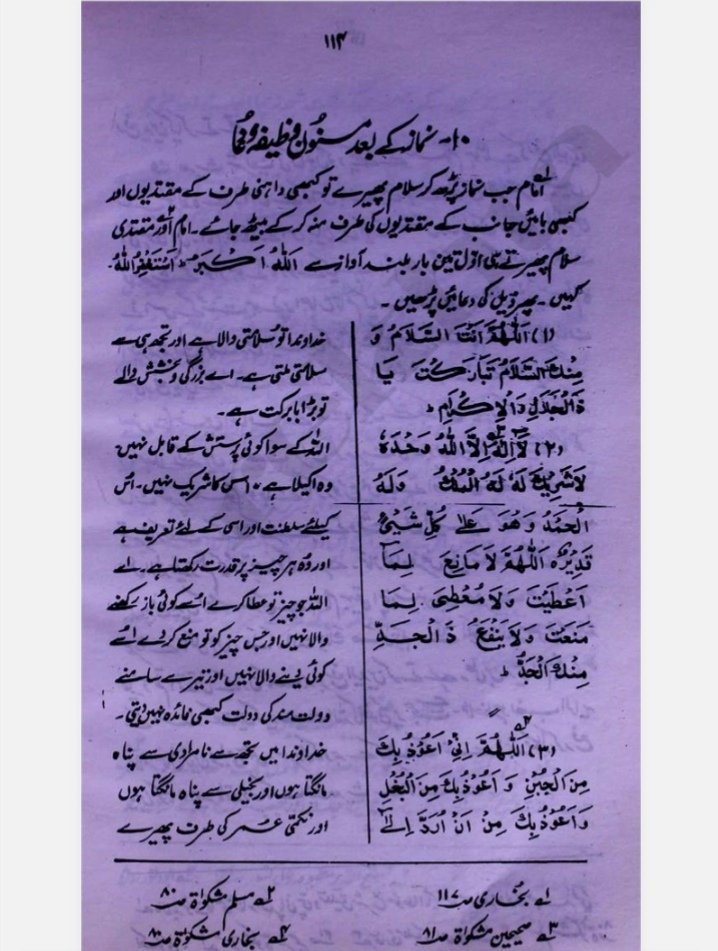 ۱۱۴
۱۰- نماز کے بعد مسنون وظیفہ و دُعا
امام جب نماز پڑھ کر سلام پھیرے تو کبھی داہنی طرف کے مقتدیوں اور
کبھی بائیں جانب کے مقتدیوں کی طرف منہ کر کے بیٹھ جائے۔ امام اور مقتدی
سلام پھیرتے ہی اوّل تین بار بلند آواز سے اَللّٰهُ اَكْبَرُ۔ اَسْتَغْفِرُ اللّٰهَ
کہیں۔ پھر ذیل کی دعائیں پڑھیں۔
(۱) اَللّٰهُمَّ اَنْتَ السَّلَامُ وَ
مِنْكَ السَّلَامُ تَبَارَكْتَ يَا
ذَا الْجَلَالِ وَالْاِكْرَامِ ط
(۲) لَآ اِلٰهَ اِلَّا اللّٰهُ وَحْدَهٗ
لَا شَرِيْكَ لَهٗ لَهُ الْمُلْكُ وَلَهُ
الْحَمْدُ وَهُوَ عَلٰى كُلِّ شَيْئٍ
قَدِيْرٌ ہ اَللّٰهُمَّ لَا مَانِعَ لِمَا
اَعْطَيْتَ وَلَا مُعْطِىَ لِمَا
مَنَعْتَ وَلَا يَنْفَعُ ذَا الْجَدِّ
مِنْكَ الْجَدُّ ط
(۳) اَللّٰهُمَّ اِنِّىْ اَعُوْذُ بِكَ
مِنَ الْجُبْنِ وَاَعُوْذُ بِكَ مِنَ الْبُخْلِ
وَاَعُوْذُ بِكَ مِنْ اَنْ اُرَدَّ اِلٰٓى
خداوندا تو سلامتی والا ہے اور تجھ ہی سے
سلامتی ملتی ہے۔ اے بزرگی و بخشش والے
تو بڑا بابرکت ہے۔
اللہ کے سوا کوئی پرستش کے قابل نہیں۔
وہ اکیلا ہے۔ اس کا شریک نہیں۔ اُس
کیلئے سلطنت اور اسی کے لئے تعریف ہے
اور وُہ ہر چیز پر قدرت رکھتا ہے۔ اے
اللہ جو چیز تو عطا کرے اُسے کوئی باز رکھنے
والا نہیں اور جس چیز کو تو منع کر دے اُسے
کوئی دینے والا نہیں اور تیرے سامنے
دولت مند کی دولت کبھی فائدہ نہیں دیتی۔
خداوندا میں تجھ سے نامردی سے پناہ
مانگتا ہوں اور بخیلی سے پناہ مانگتا ہوں
اور نکمّی عُمر کی طرف پھیرے
۱ بخاری ص ۱۱۷ ۲ مسلم مشکوٰۃ ص ۸۰
۳ صحیحین مشکوٰۃ ص ۸۱ ۴ بخاری مشکوٰۃ ص ۸۰